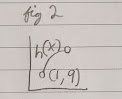 fig 2
h(x)
(1,9)